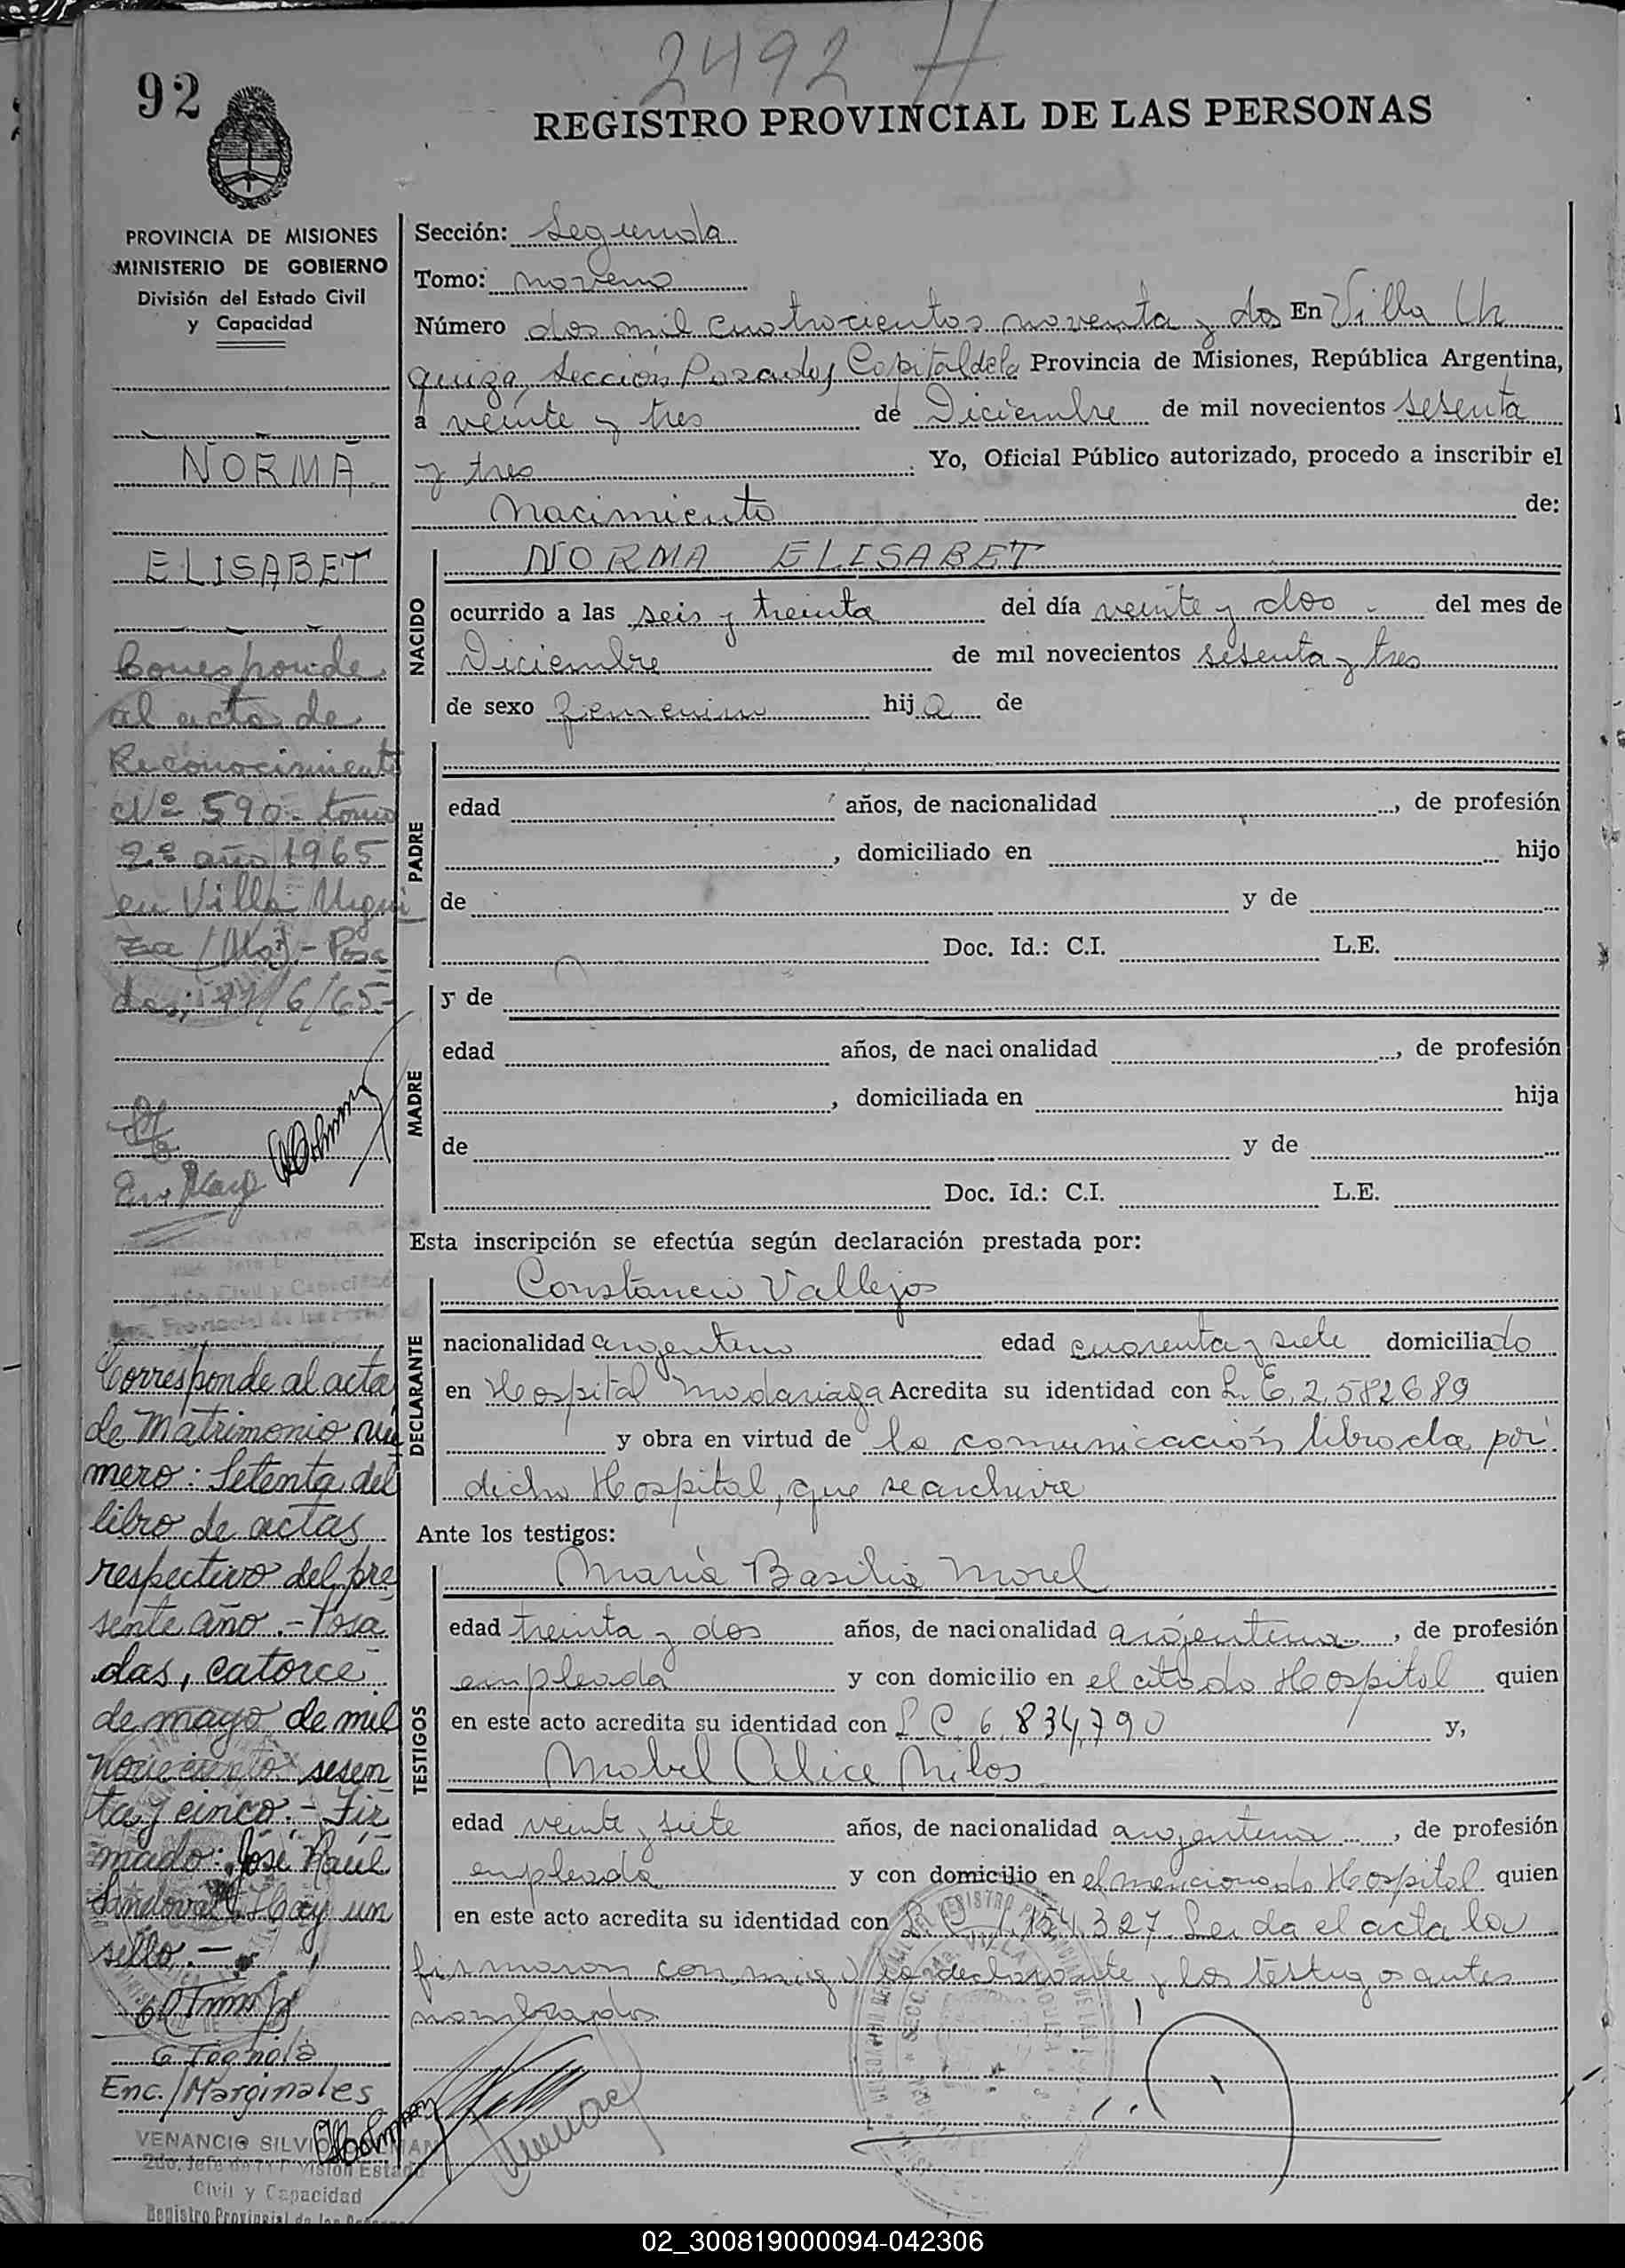 2492
92
REGISTRO PROVINCIAL DE LAS PERSONAS
PROVINCIA DE MISIONES
MINISTERIO DE GOBIERNO
División del Estado Civil
y Capacidad
NORMA
ELISABET
Corresponde
al acta de
Reconocimiento
Nº 590- tomo
2º año 1965
en Villa Urqui
za (Mos).- Posa
das, 11/6/65-
Enc. Marg
Corresponde al acta
de Matrimonio nú
mero: Setenta del
libro de actas
respectivo del pre
sente año.- Posa
das, catorce
de mayo de mil
novecientos sesen
ta y cinco.- Fir
mado: José Raúl
Sandoval. Hay un
sello.-
Enc./Marginales
VENANCIO SILVIO
2do. Jefe de División Estado
Civil y Capacidad
Registro Provincial de las
Sección: Segunda
Tomo: noveno
Número dos mil cuatrocientos noventa y dos En Villa Ur
quiza, Sección Posadas Capital de la Provincia de Misiones, República Argentina,
a veinte y tres de Diciembre de mil novecientos sesenta
y tres Yo, Oficial Público autorizado, procedo a inscribir el
Nacimiento de:
NACIDO
NORMA ELISABET
ocurrido a las seis y treinta del día veinte y dos del mes de
Diciembre de mil novecientos sesenta y tres
de sexo femenino hija de
PADRE
edad años, de nacionalidad , de profesión
, domiciliado en hijo
de y de
Doc. Id.: C.I. L.E.
MADRE
y de
edad años, de nacionalidad , de profesión
, domiciliada en hija
de y de
Doc. Id.: C.I. L.E.
Esta inscripción se efectúa según declaración prestada por:
DECLARANTE
Constancio Vallejos
nacionalidad argentino edad cuarenta y siete domiciliado
en Hospital Madariaga Acredita su identidad con L.E. 2.582689
y obra en virtud de la comunicación librada por
dicho Hospital, que se archiva
Ante los testigos:
TESTIGOS
María Basilia Morel
edad treinta y dos años, de nacionalidad argentina, de profesión
empleada y con domicilio en el citado Hospital quien
en este acto acredita su identidad con L C 6.834,790 y,
Mabel Alice Milos
edad veinte y siete años, de nacionalidad argentina, de profesión
empleada y con domicilio en el mencionado Hospital quien
en este acto acredita su identidad con 1.154.327. Leida el acta la
firmaron conmigo el declarante y los testigos antes
nombrados
02_300819000094-042306